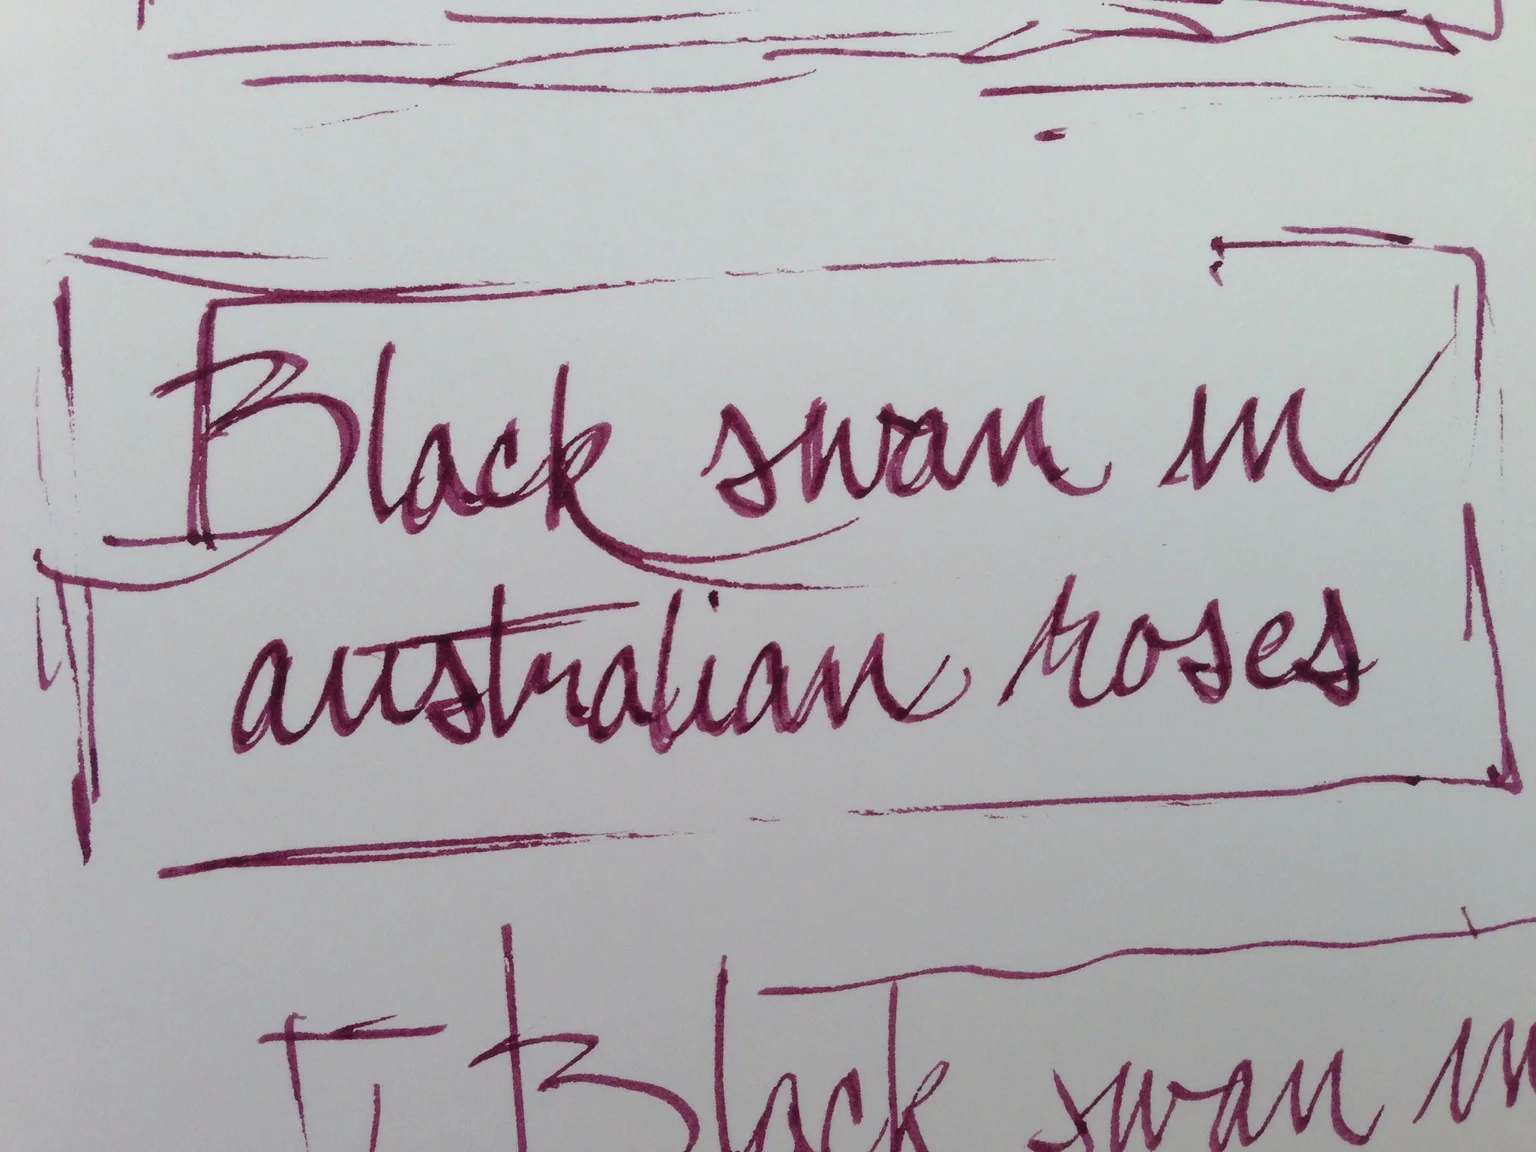 Black swan in
australian roses
Black swan in